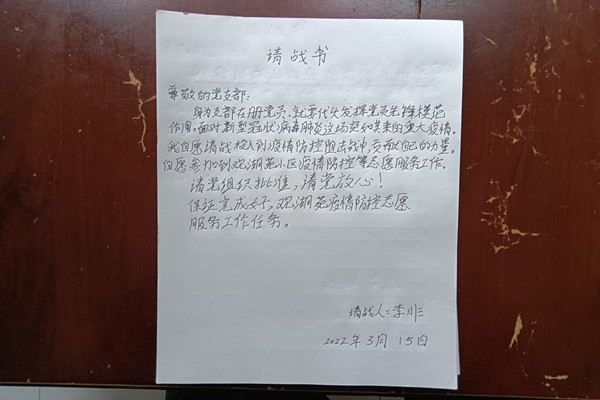 请战书
尊敬的党支部：
身为支部在册党员，就要代头发挥党员先锋模范
作用。面对新型冠状病毒肺炎这场突如其来的重大疫情。
我自愿请战投入到疫情防控阻击战中，贡献自己的力量。
自愿参加到观湖苑小区疫情防控等志愿服务工作。
请党组织批准，请党放心！
保证完成好，观湖苑疫情防控志愿
服务工作任务。
请战人：李非
2022年3月15日